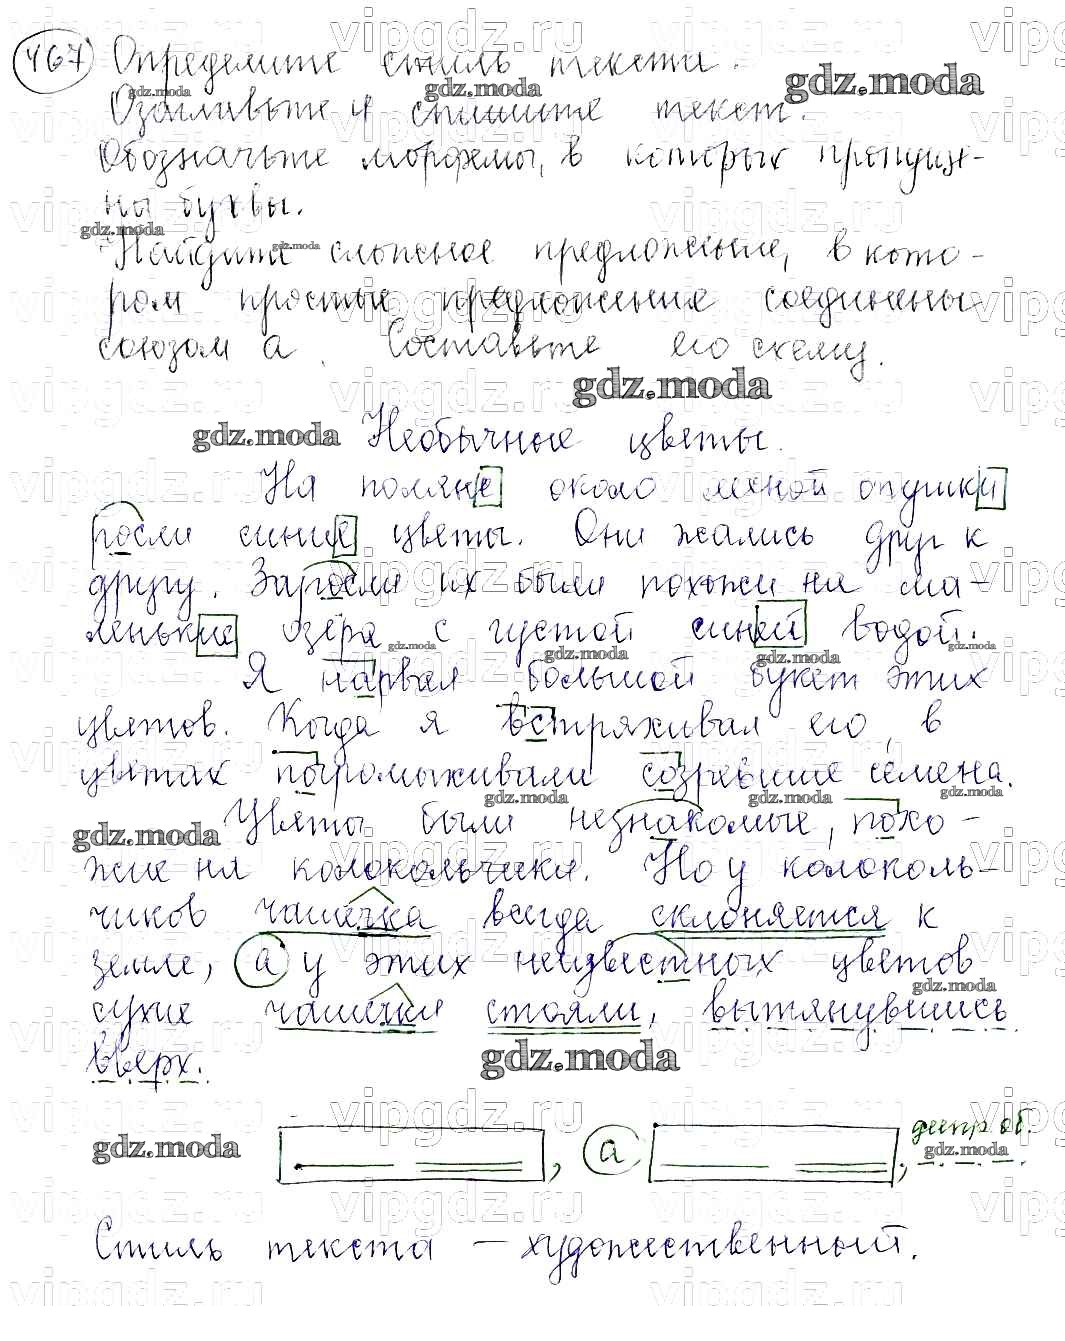 467 Определите стиль текста.
Озаглавьте и спишите текст.
Обозначьте морфемы, в которых пропуще-
ны буквы.
Найдите сложное предложение, в кото-
ром простые предложения соединены
союзом а. Составьте его схему.
Необычные цветы.
На поляне около лесной опушки
росли синие цветы. Они жались друг к
другу. Заросли их были похожи на ма-
ленькие озёра с густой синей водой.
Я нарвал большой букет этих
цветов. Когда я встряхивал его, в
цветах погромыхивали созревшие семена.
Цветы были незнакомые, похо-
жие на колокольчики. Но у колоколь-
чиков чашечка всегда склоняется к
земле, а у этих неизвестных цветов
сухие чашечки стояли, вытянувшись
вверх.
, а , деепр. об.
Стиль текста – художественный.
vipgdz.ru
gdz.moda